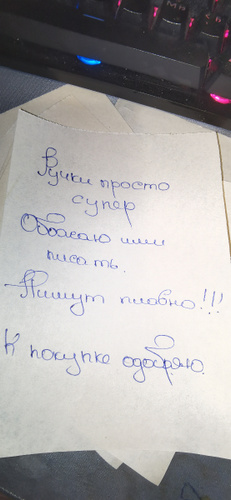 Ручки просто
супер
Обожаю ими
писать.
Пишут плавно!!!
К покупке одобряю.